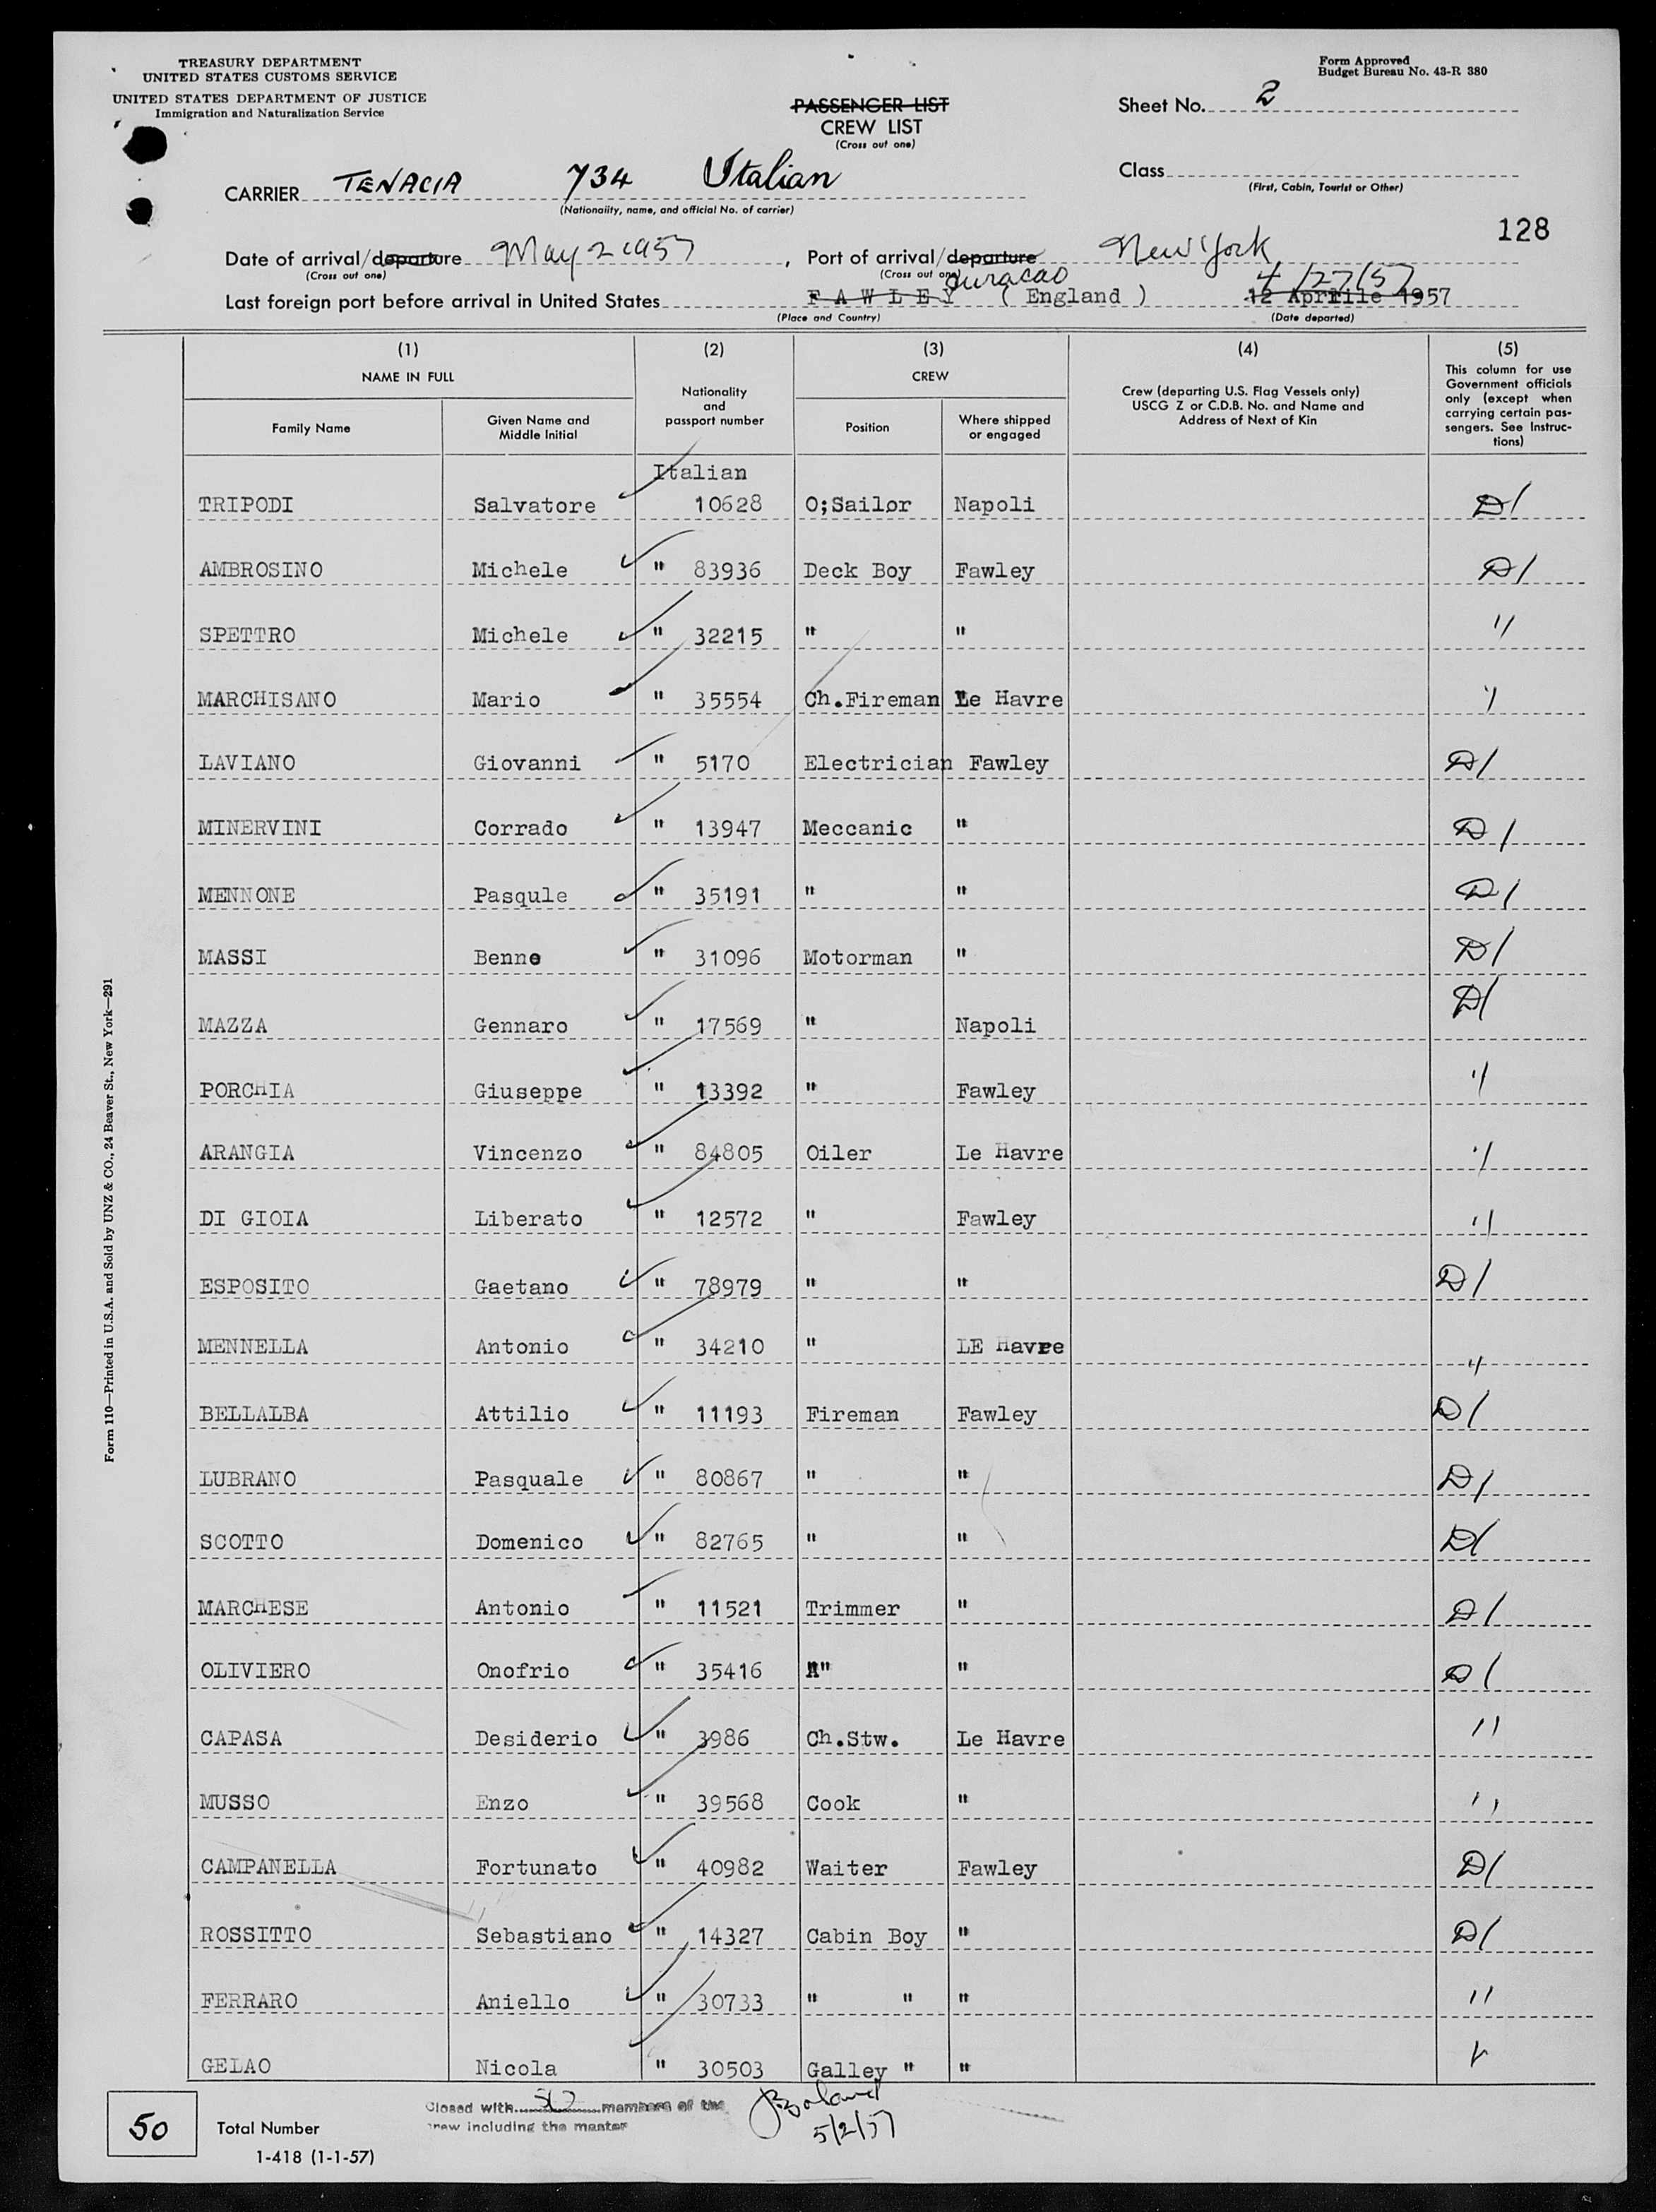 TREASURY DEPARTMENT
UNITED STATES CUSTOMS SERVICE
UNITED STATES DEPARTMENT OF JUSTICE
Immigration and Naturalization Service
Form Approved
Budget Bureau No. 43-R 380
PASSENGER LIST
CREW LIST
(Cross out one)
Sheet No. 2
CARRIER TENACIA 734 Italian
(Nationality, name, and official No. of carrier)
Class
(First, Cabin, Tourist or Other)
128
Date of arrival/departure May 2 1957, Port of arrival/departure New York
(Cross out one) (Cross out one)
Curacao 4/27/57
Last foreign port before arrival in United States FAWLEY ( England ) 12 Aprile 1957
(Place and Country) (Date departed)
(1) (2) (3) (4) (5)
NAME IN FULL
Family Name
Given Name and Middle Initial
Nationality and passport number
CREW
Position
Where shipped or engaged
Crew (departing U.S. Flag Vessels only)
USCG Z or C.D.B. No. and Name and
Address of Next of Kin
This column for use
Government officials
only (except when
carrying certain pas-
sengers. See Instruc-
tions)
Italian
TRIPODI Salvatore 10628 O;Sailor Napoli D1
AMBROSINO Michele " 83936 Deck Boy Fawley D1
SPETTRO Michele " 32215 " " "
MARCHISANO Mario " 35554 Ch.Fireman Le Havre "
LAVIANO Giovanni " 5170 Electrician Fawley D1
MINERVINI Corrado " 13947 Meccanic " D1
MENNONE Pasqule " 35191 " " D1
MASSI Benno " 31096 Motorman " D1
MAZZA Gennaro " 17569 " Napoli D1
PORCHIA Giuseppe " 13392 " Fawley "
ARANGIA Vincenzo " 84805 Oiler Le Havre "
DI GIOIA Liberato " 12572 " Fawley "
ESPOSITO Gaetano " 78979 " " D1
MENNELLA Antonio " 34210 " LE Havre "
BELLALBA Attilio " 11193 Fireman Fawley D1
LUBRANO Pasquale " 80867 " " D1
SCOTTO Domenico " 82765 " " D1
MARCHESE Antonio " 11521 Trimmer " D1
OLIVIERO Onofrio " 35416 " " D1
CAPASA Desiderio " 3986 Ch.Stw. Le Havre "
MUSSO Enzo " 39568 Cook " "
CAMPANELLA Fortunato " 40982 Waiter Fawley D1
ROSSITTO Sebastiano " 14327 Cabin Boy " D1
FERRARO Aniello " 30733 " " " "
GELAO Nicola " 30503 Galley " "
50 Total Number
Closed with 50 members of the
crew including the master
5/2/57
1-418 (1-1-57)
Form 110—Printed in U.S.A. and Sold by UNZ & CO., 24 Beaver St., New York—291